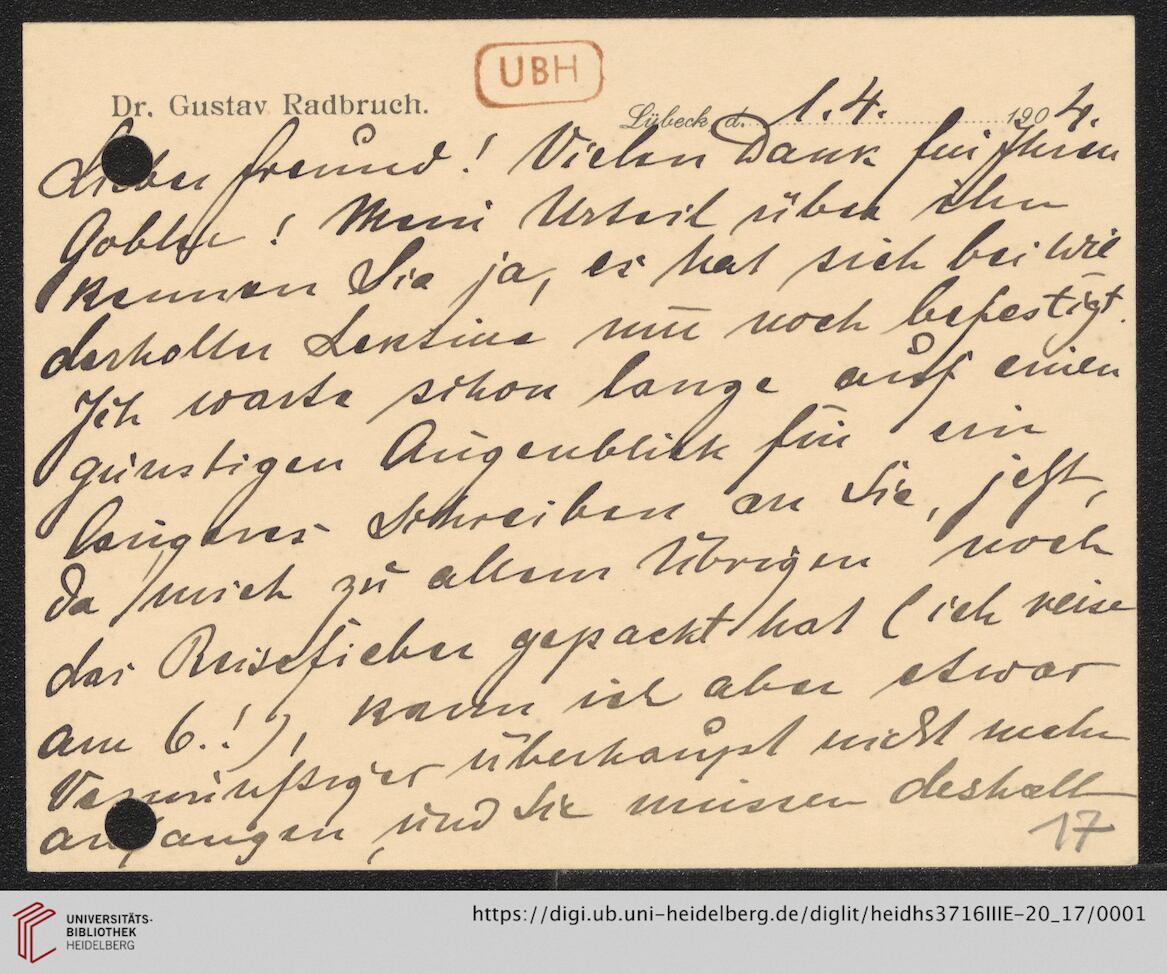 UBH
Dr. Gustav Radbruch.
Lübeck, d. 1. 4. 1904.
Lieber Freund! Vielen Dank für Ihren
! Mein Urteil über ihn
kennen Sie ja, es hat sich bei wie
derholter Lektüre nur noch befestigt.
Ich warte schon lange auf einen
günstigen Augenblick für ein
längeres Schreiben an Sie, jetzt,
da mich zu allem Übrigen noch
das Reisefieber gepackt hat (ich reise
am 6.!), kann ich aber etwas
Vernünftiges überhaupt nicht mehr
anfangen, und Sie müssen deshalb
17
UNIVERSITÄTS-
BIBLIOTHEK
HEIDELBERG
https://digi.ub.uni-heidelberg.de/diglit/heidhs3716IIIE-20_17/0001